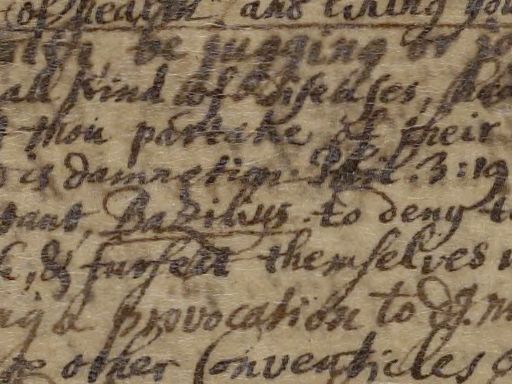 of health and living
be judging or
all kind of diseases,
thou partake of their
is damnation Phil. 3:19
Bazilius to deny
& surfeit themselves
a provocation to
other Conventicles